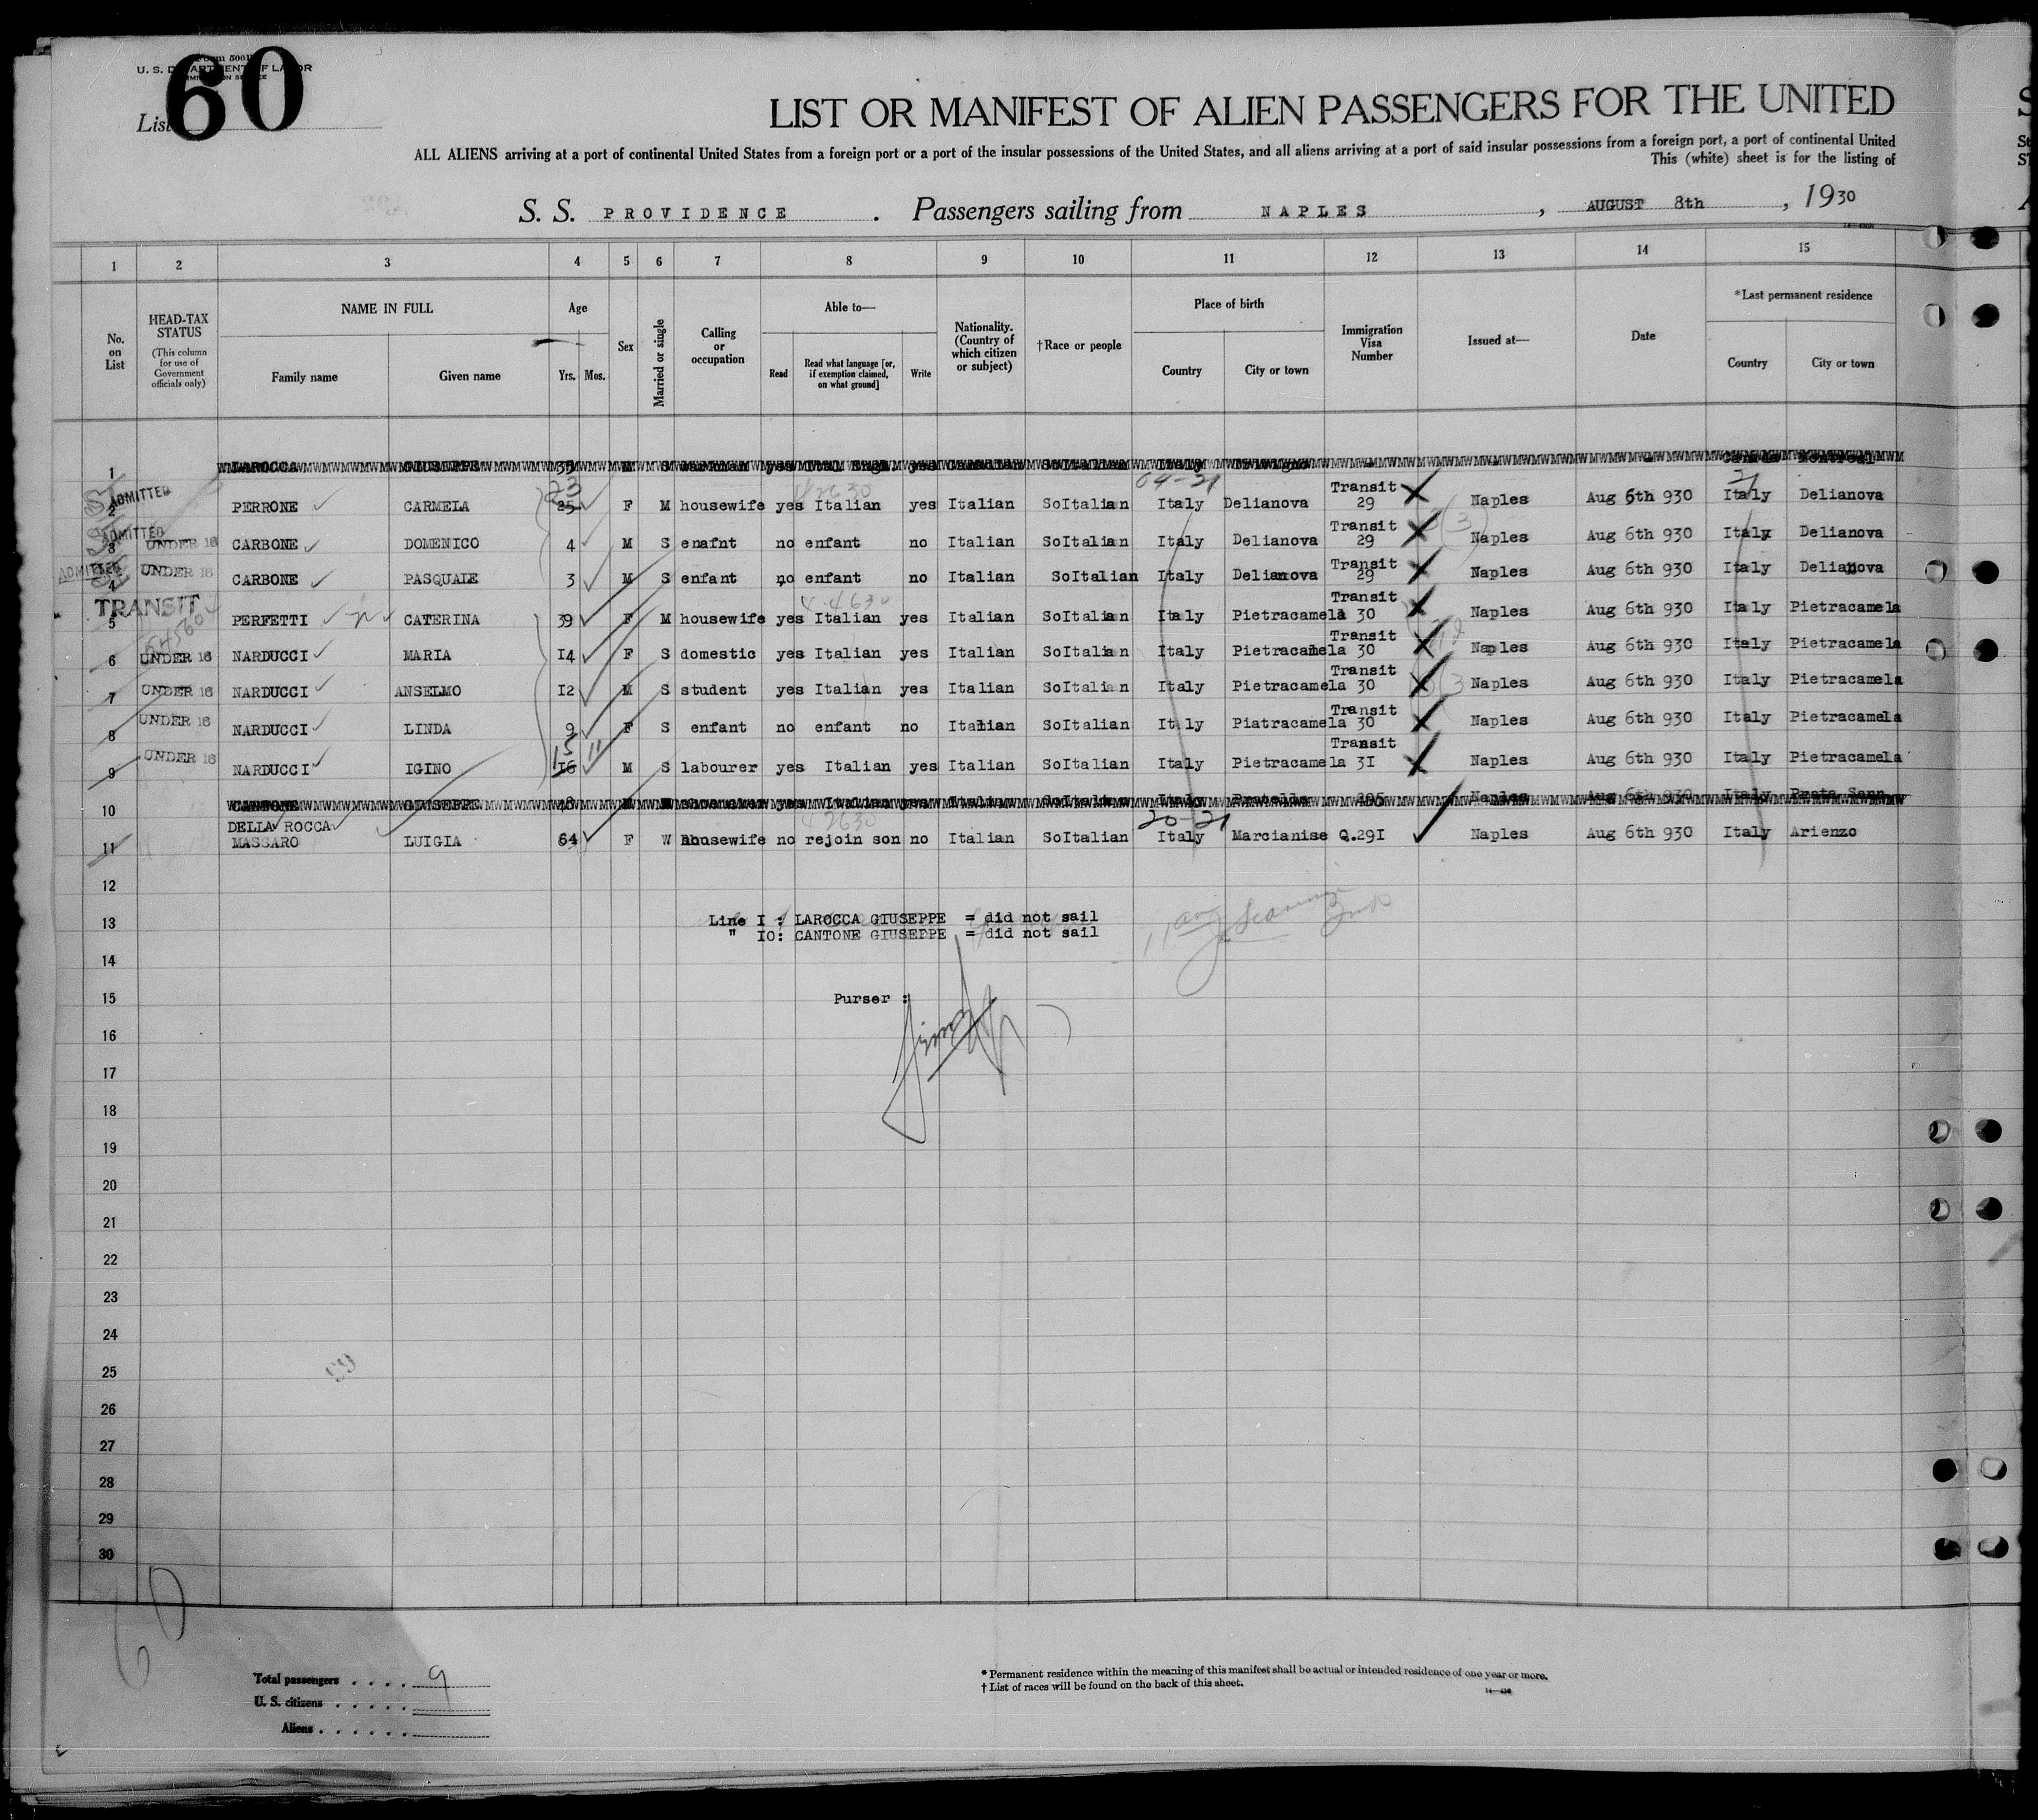 60
Form 500
U. S. DEPARTMENT OF LABOR
IMMIGRATION SERVICE
List
LIST OR MANIFEST OF ALIEN PASSENGERS FOR THE UNITED
ALL ALIENS arriving at a port of continental United States from a foreign port or a port of the insular possessions of the United States, and all aliens arriving at a port of said insular possessions from a foreign port, a port of continental United
This (white) sheet is for the listing of
S. S. PROVIDENCE . Passengers sailing from NAPLES , AUGUST 8th , 1930
1 2 3 4 5 6 7 8 9 10 11 12 13 14 15
No. on List
HEAD-TAX STATUS
(This column for use of Government officials only)
NAME IN FULL
Family name Given name
Age
Yrs. Mos.
Sex
Married or single
Calling or occupation
Able to—
Read
Read what language [or, if exemption claimed, on what ground]
Write
Nationality. (Country of which citizen or subject)
†Race or people
Place of birth
Country City or town
Immigration Visa Number
Issued at—
Date
*Last permanent residence
Country City or town
1 LAROCCA GIUSEPPE yes Canadian SoItalian Italy Canada Montreal
04-21
2 ADMITTED PERRONE CARMELA 23 25 F M housewife yes Italian yes Italian SoItalian Italy Delianova Transit 29 Naples Aug 6th 930 Italy Delianova
3 ADMITTED UNDER 16 CARBONE DOMENICO 4 M S enafnt no enfant no Italian SoItalian Italy Delianova Transit 29 Naples Aug 6th 930 Italy Delianova
4 ADMITTED UNDER 16 CARBONE PASQUALE 3 M S enfant no enfant no Italian SoItalian Italy Delianova Transit 29 Naples Aug 6th 930 Italy Delianova
TRANSIT
5 PERFETTI CATERINA 39 F M housewife yes Italian yes Italian SoItalian Italy Pietracamela Transit 30 Naples Aug 6th 930 Italy Pietracamela
6 UNDER 16 NARDUCCI MARIA I4 F S domestic yes Italian yes Italian SoItalian Italy Pietracamela Transit 30 Naples Aug 6th 930 Italy Pietracamela
7 UNDER 16 NARDUCCI ANSELMO I2 M S student yes Italian yes Italian SoItalian Italy Pietracamela Transit 30 Naples Aug 6th 930 Italy Pietracamela
8 UNDER 16 NARDUCCI LINDA 9 F S enfant no enfant no Italian SoItalian Italy Piatracamela Transit 30 Naples Aug 6th 930 Italy Pietracamela
9 UNDER 16 NARDUCCI IGINO 15 11 I6 M S labourer yes Italian yes Italian SoItalian Italy Pietracamela Transit 3I Naples Aug 6th 930 Italy Pietracamela
10 CANTONE GIUSEPPE 48 yes Italian yes Italian SoItalian Italy 295 Naples Aug 6th 930 Italy Prata Sann
20-21
11 DELLA ROCCA MASSARO LUIGIA 64 F W housewife no rejoin son no Italian SoItalian Italy Marcianise Q.29I Naples Aug 6th 930 Italy Arienzo
12
13 Line I : LAROCCA GIUSEPPE = did not sail
" IO: CANTONE GIUSEPPE = did not sail
14
15 Purser :
16
17
18
19
20
21
22
23
24
25
26
27
28
29
30
60
Total passengers . . . . 9
U. S. citizens . . . . .
Aliens . . . . . .
* Permanent residence within the meaning of this manifest shall be actual or intended residence of one year or more.
† List of races will be found on the back of this sheet.